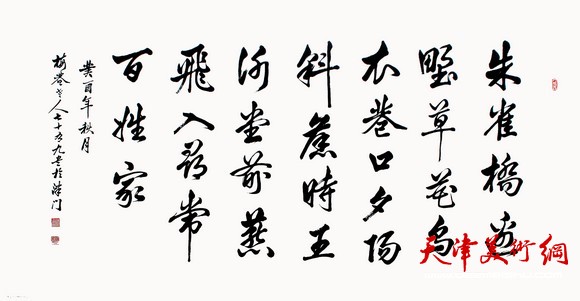 朱雀橋邊
墅草花烏
衣巷口夕陽
斜舊時王
謝堂前燕
飛入尋常
百姓家
癸酉年秋月
老人七十有九書於津門
天津美術網